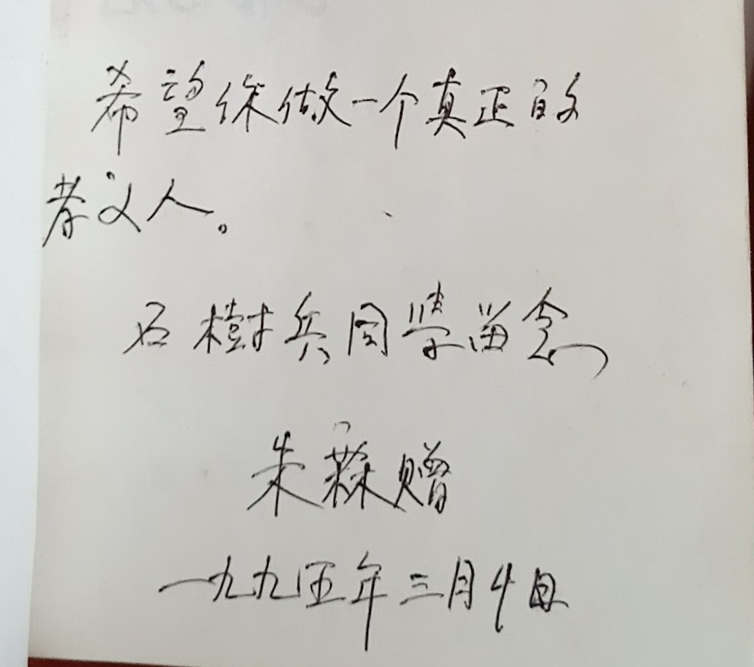 希望你做一个真正的
孝义人。
石樹兵同學留念
朱 赠
一九九五年三月4日